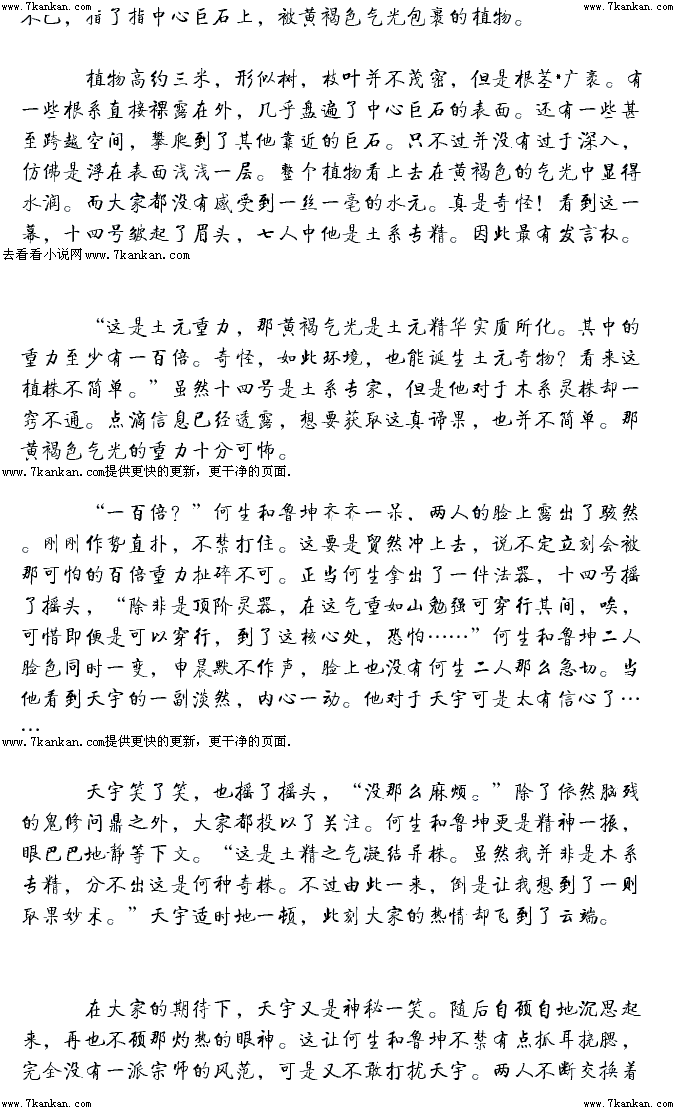 www.7kankan.com www.7kankan.com
不已，指了指中心巨石上，被黄褐色气光包裹的植物。
植物高约三米，形似树，枝叶并不茂密，但是根茎·广袤。有
一些根系直接裸露在外，几乎盘遍了中心巨石的表面。还有一些甚
至跨越空间，攀爬到了其他靠近的巨石。只不过并没有过于深入，
仿佛是浮在表面浅浅一层。整个植物看上去在黄褐色的气光中显得
水润。而大家都没有感受到一丝一毫的水元。真是奇怪！看到这一
幕，十四号皱起了眉头，七人中他是土系专精。因此最有发言权。
去看看小说网www.7kankan.com
“这是土元重力，那黄褐气光是土元精华实质所化。其中的
重力至少有一百倍。奇怪，如此环境，也能诞生土元奇物？看来这
植株不简单。”虽然十四号是土系专家，但是他对于木系灵株却一
窍不通。点滴信息已经透露，想要获取这真谛果，也并不简单。那
黄褐色气光的重力十分可怖。
www.7kankan.com提供更快的更新，更干净的页面.
“一百倍？”何生和鲁坤齐齐一呆，两人的脸上露出了骇然
。刚刚作势直扑，不禁打住。这要是贸然冲上去，说不定立刻会被
那可怕的百倍重力扯碎不可。正当何生拿出了一件法器，十四号摇
了摇头，“除非是顶阶灵器，在这气重如山勉强可穿行其间，唉，
可惜即便是可以穿行，到了这核心处，恐怕……”何生和鲁坤二人
脸色同时一变，申晨默不作声，脸上也没有何生二人那么急切。当
他看到天宇的一副淡然，内心一动。他对于天宇可是太有信心了…
…
www.7kankan.com提供更快的更新，更干净的页面.
天宇笑了笑，也摇了摇头，“没那么麻烦。”除了依然脑残
的鬼修问鼎之外，大家都投以了关注。何生和鲁坤更是精神一振，
眼巴巴地静等下文。“这是土精之气凝结异株。虽然我并非是木系
专精，分不出这是何种奇株。不过由此一来，倒是让我想到了一则
取果妙术。”天宇适时地一顿，此刻大家的热情却飞到了云端。
在大家的期待下，天宇又是神秘一笑。随后自顾自地沉思起
来，再也不顾那灼热的眼神。这让何生和鲁坤不禁有点抓耳挠腮，
完全没有一派宗师的风范，可是又不敢打扰天宇。两人不断交换着
www.7kankan.com www.7kankan.com